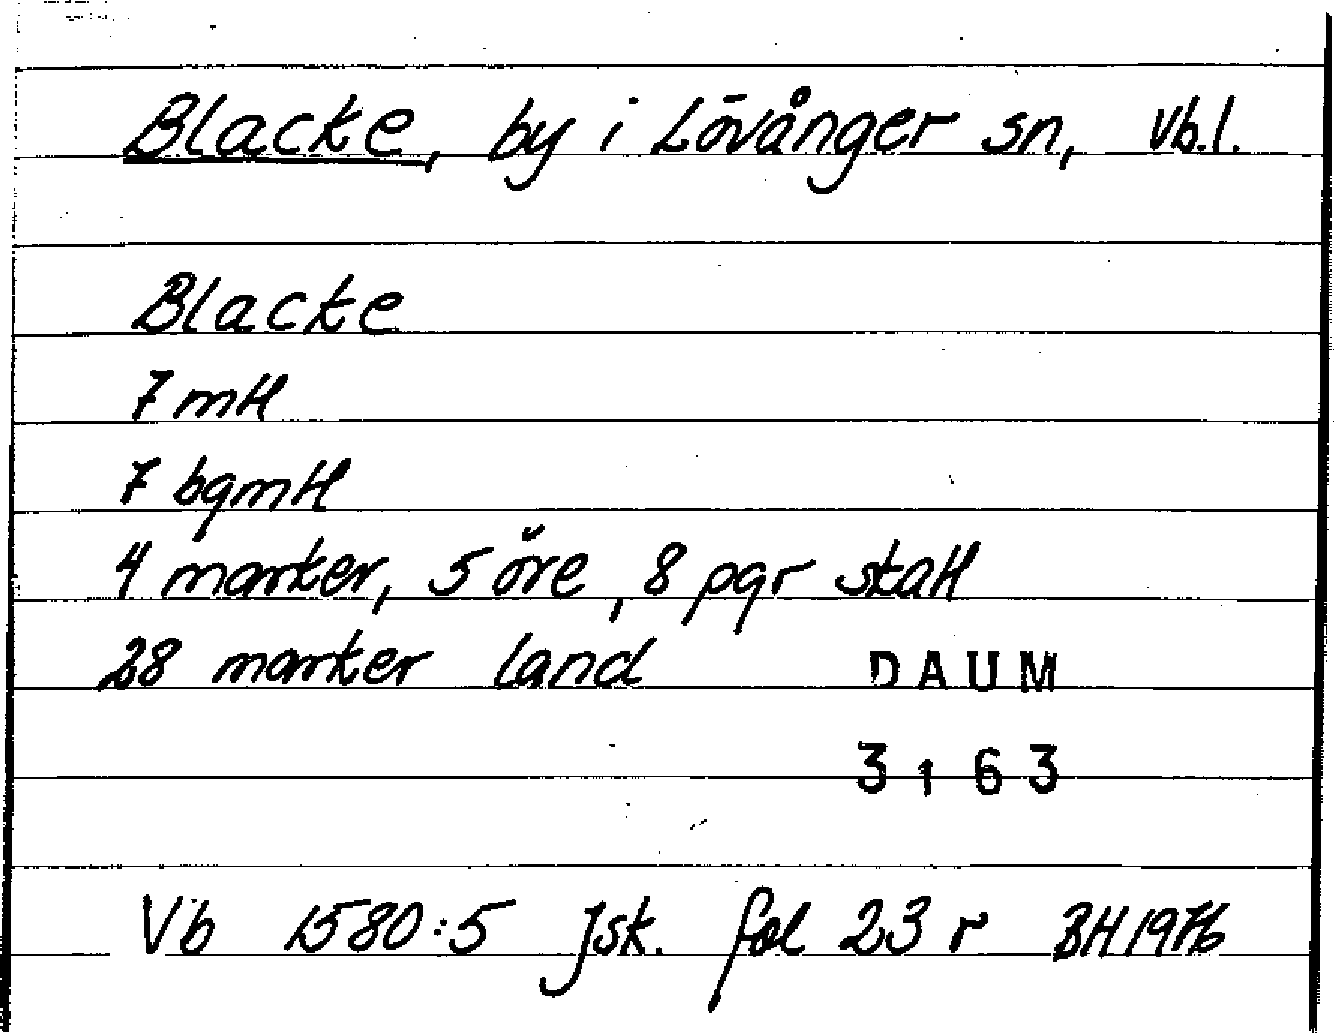 Blacke, by i Lövånger sn, Vb.l.
Blacke
7 mtl
7 bgmtl
4 marker, 5 öre, 8 pgr skatt
28 marker land
DAUM
3163
Vb 1580:5 Jsk. fol 23 r BH 1976